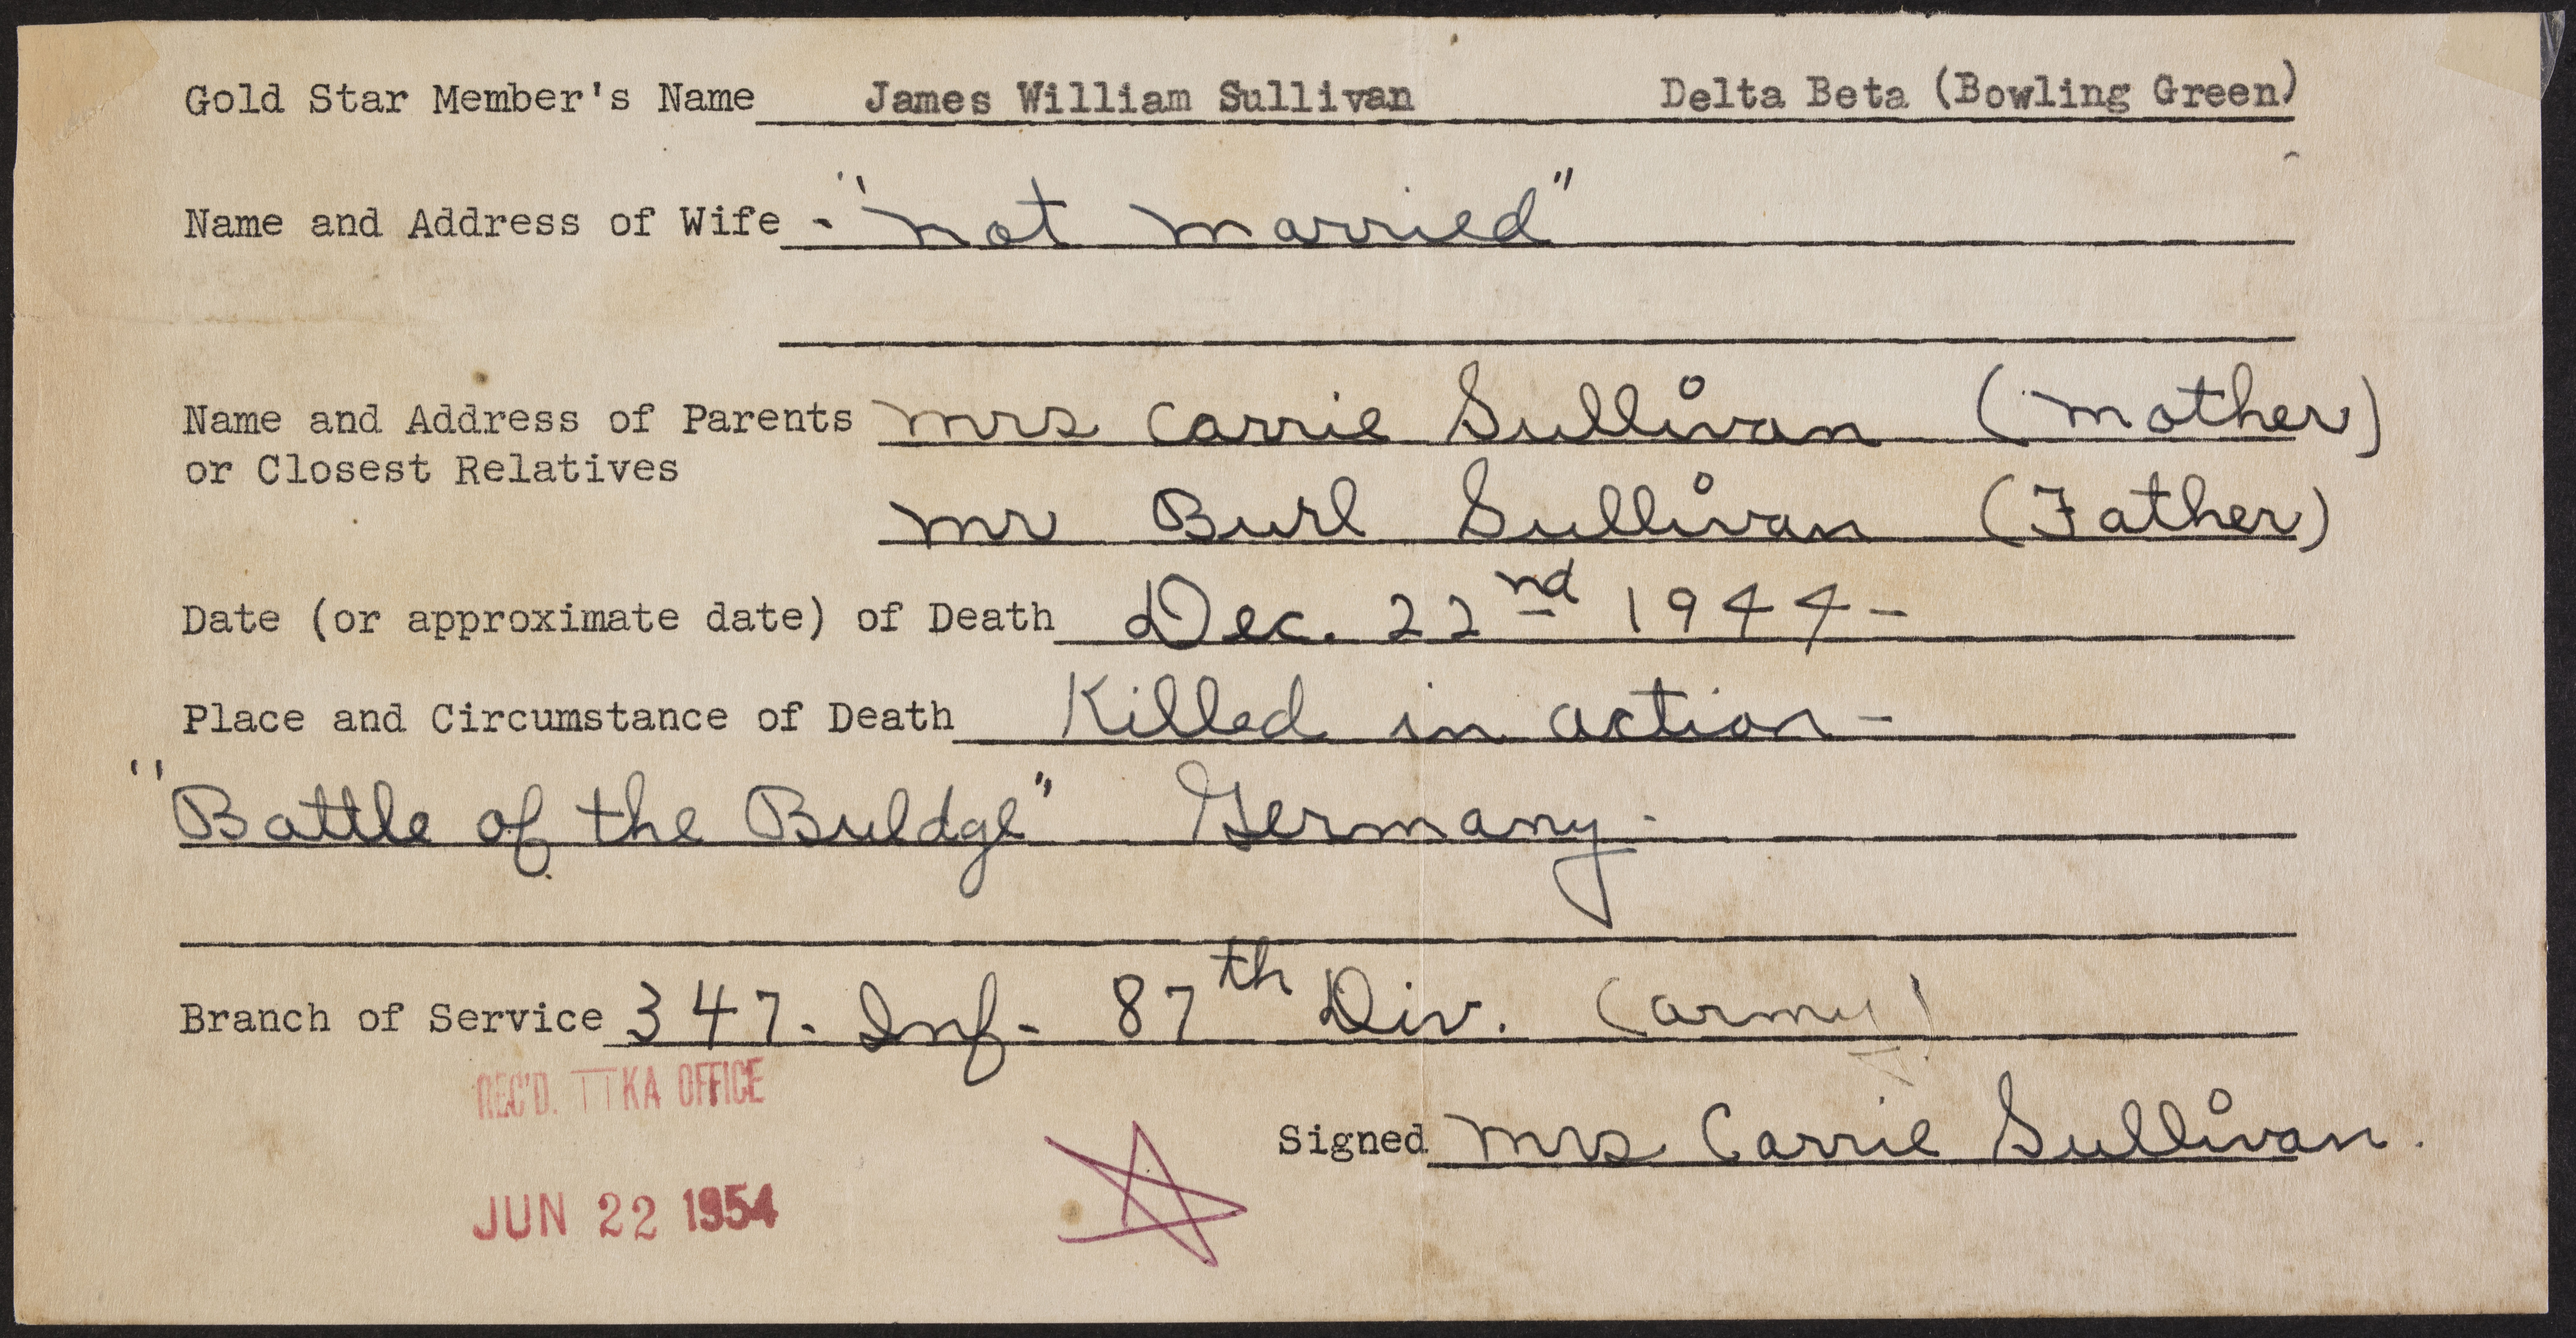 Gold Star Member's Name James William Sullivan Delta Beta (Bowling Green)
Name and Address of Wife - "not married"
Name and Address of Parents Mrs Carrie Sullivan (Mother)
or Closest Relatives
Mr Burl Sullivan (Father)
Date (or approximate date) of Death Dec. 22nd 1944-
Place and Circumstance of Death Killed in action-
"Battle of the Buldge" Germany.
Branch of Service 347. Inf- 87th Div. (army)
REC'D. ΠKA OFFICE
Signed Mrs Carrie Sullivan.
JUN 22 1954